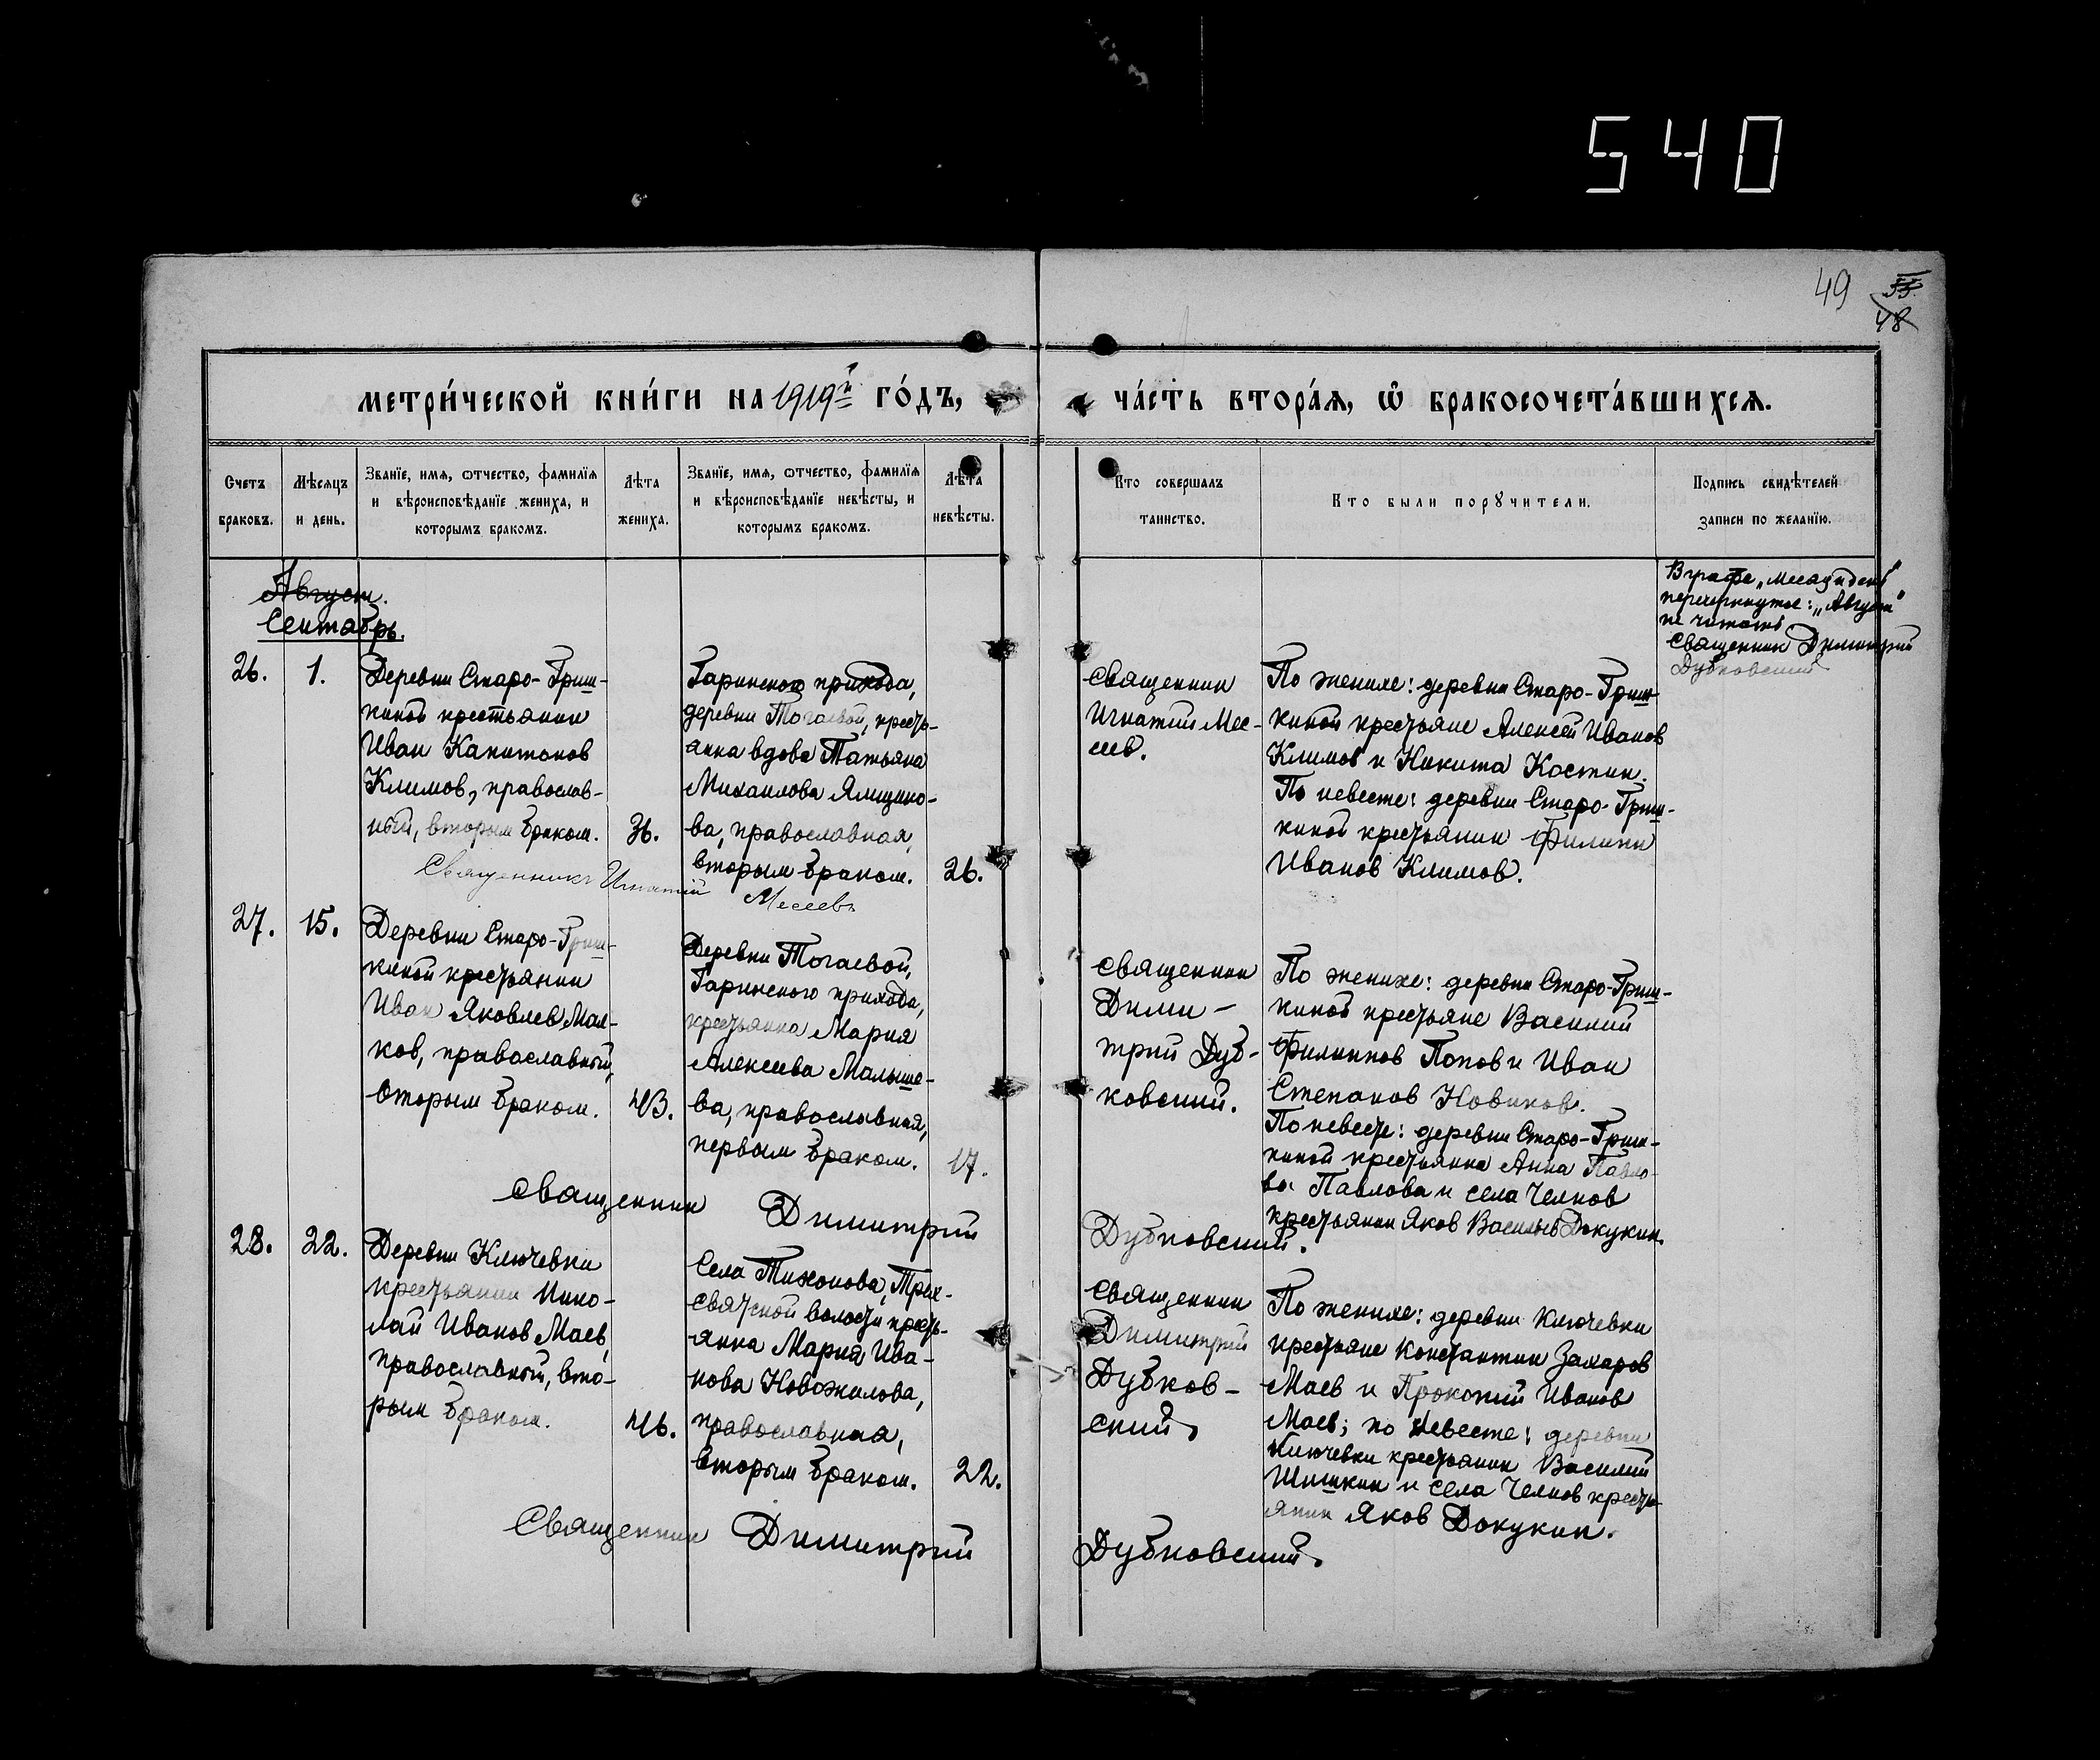 540
49
55.
48
метри́ческой кни́ги на 1919й го́дъ,
ча́сть втора́я, ѡ҆ бракосочета́вшихся.
Счетъ браковъ.
Мѣсяцъ и день.
Званїе, имя, ѿчество, фамилїя
и вѣроисповѣданїе жениха, и
которымъ бракомъ.
Лѣта
жениха.
Званїе, имя, ѿчество, фамилїя
и вѣроисповѣданїе невѣсты, и
которымъ бракомъ.
Лѣта
невѣсты.
Кто совершалъ
таинство.
Кто были порꙋчители.
Подпись свидѣтелей
записи по желанїю.
Август.
Сентябрь.
В графе „месяц и день"
перечеркнутое: „Август"
не читать
Священник Димитрий
Дубковский
26.
1.
Деревни Старо-Гриш-
киной крестьянин
Иван Капитонов
Климов, православ-
ный, вторым браком.
36.
Гаринского прихода,
деревни Тогаевой, кресть-
янка вдова Татьяна
Михаилова Ямщико-
ва, православная,
вторым браком.
26.
Священник
Игнатий Мес-
еев.
По женихе: деревни Старо-Гриш-
киной крестьяне Алексей Иванов
Климов и Никита Костин.
По невесте: деревни Старо-Гриш-
киной крестьянин Филипп
Иванов Климов.
Священникъ Игнатій Месеевъ
27.
15.
Деревни Старо-Гриш-
киной крестьянин
Иван Яковлев Мал-
ков, православный,
вторым браком.
43.
Деревни Тогаевой,
Гаринского прихода,
крестьянка Мария
Алексеева Малыше-
ва, православная,
первым браком.
17.
Священник
Дими-
трий Дуб-
ковский.
По женихе: деревни Старо-Гриш-
киной крестьяне Василий
Филиппов Попов и Иван
Степанов Новиков.
По невесте: деревни Старо-Гриш-
киной крестьянка Анна Павло-
ва Павлова и села Челнов
крестьянин Яков Васильев Докукин.
Священник Димитрий Дубковский.
28.
22.
Деревни Ключевки
крестьянин Нико-
лай Иванов Маев,
православный, вто-
рым браком.
46.
Села Тихонова, Трех-
святской волости кресть-
янка Мария Ива-
нова Новожилова,
православная,
вторым браком.
22.
Священник
Димитрий
Дубков-
ский.
По женихе: деревни Ключевки
крестьяне Константин Захаров
Маев и Прокопий Иванов
Маев; по невесте: деревни
Ключевки крестьянин Василий
Шишкин и села Челнов кресть-
янин Яков Докукин.
Священник Димитрий Дубковский.